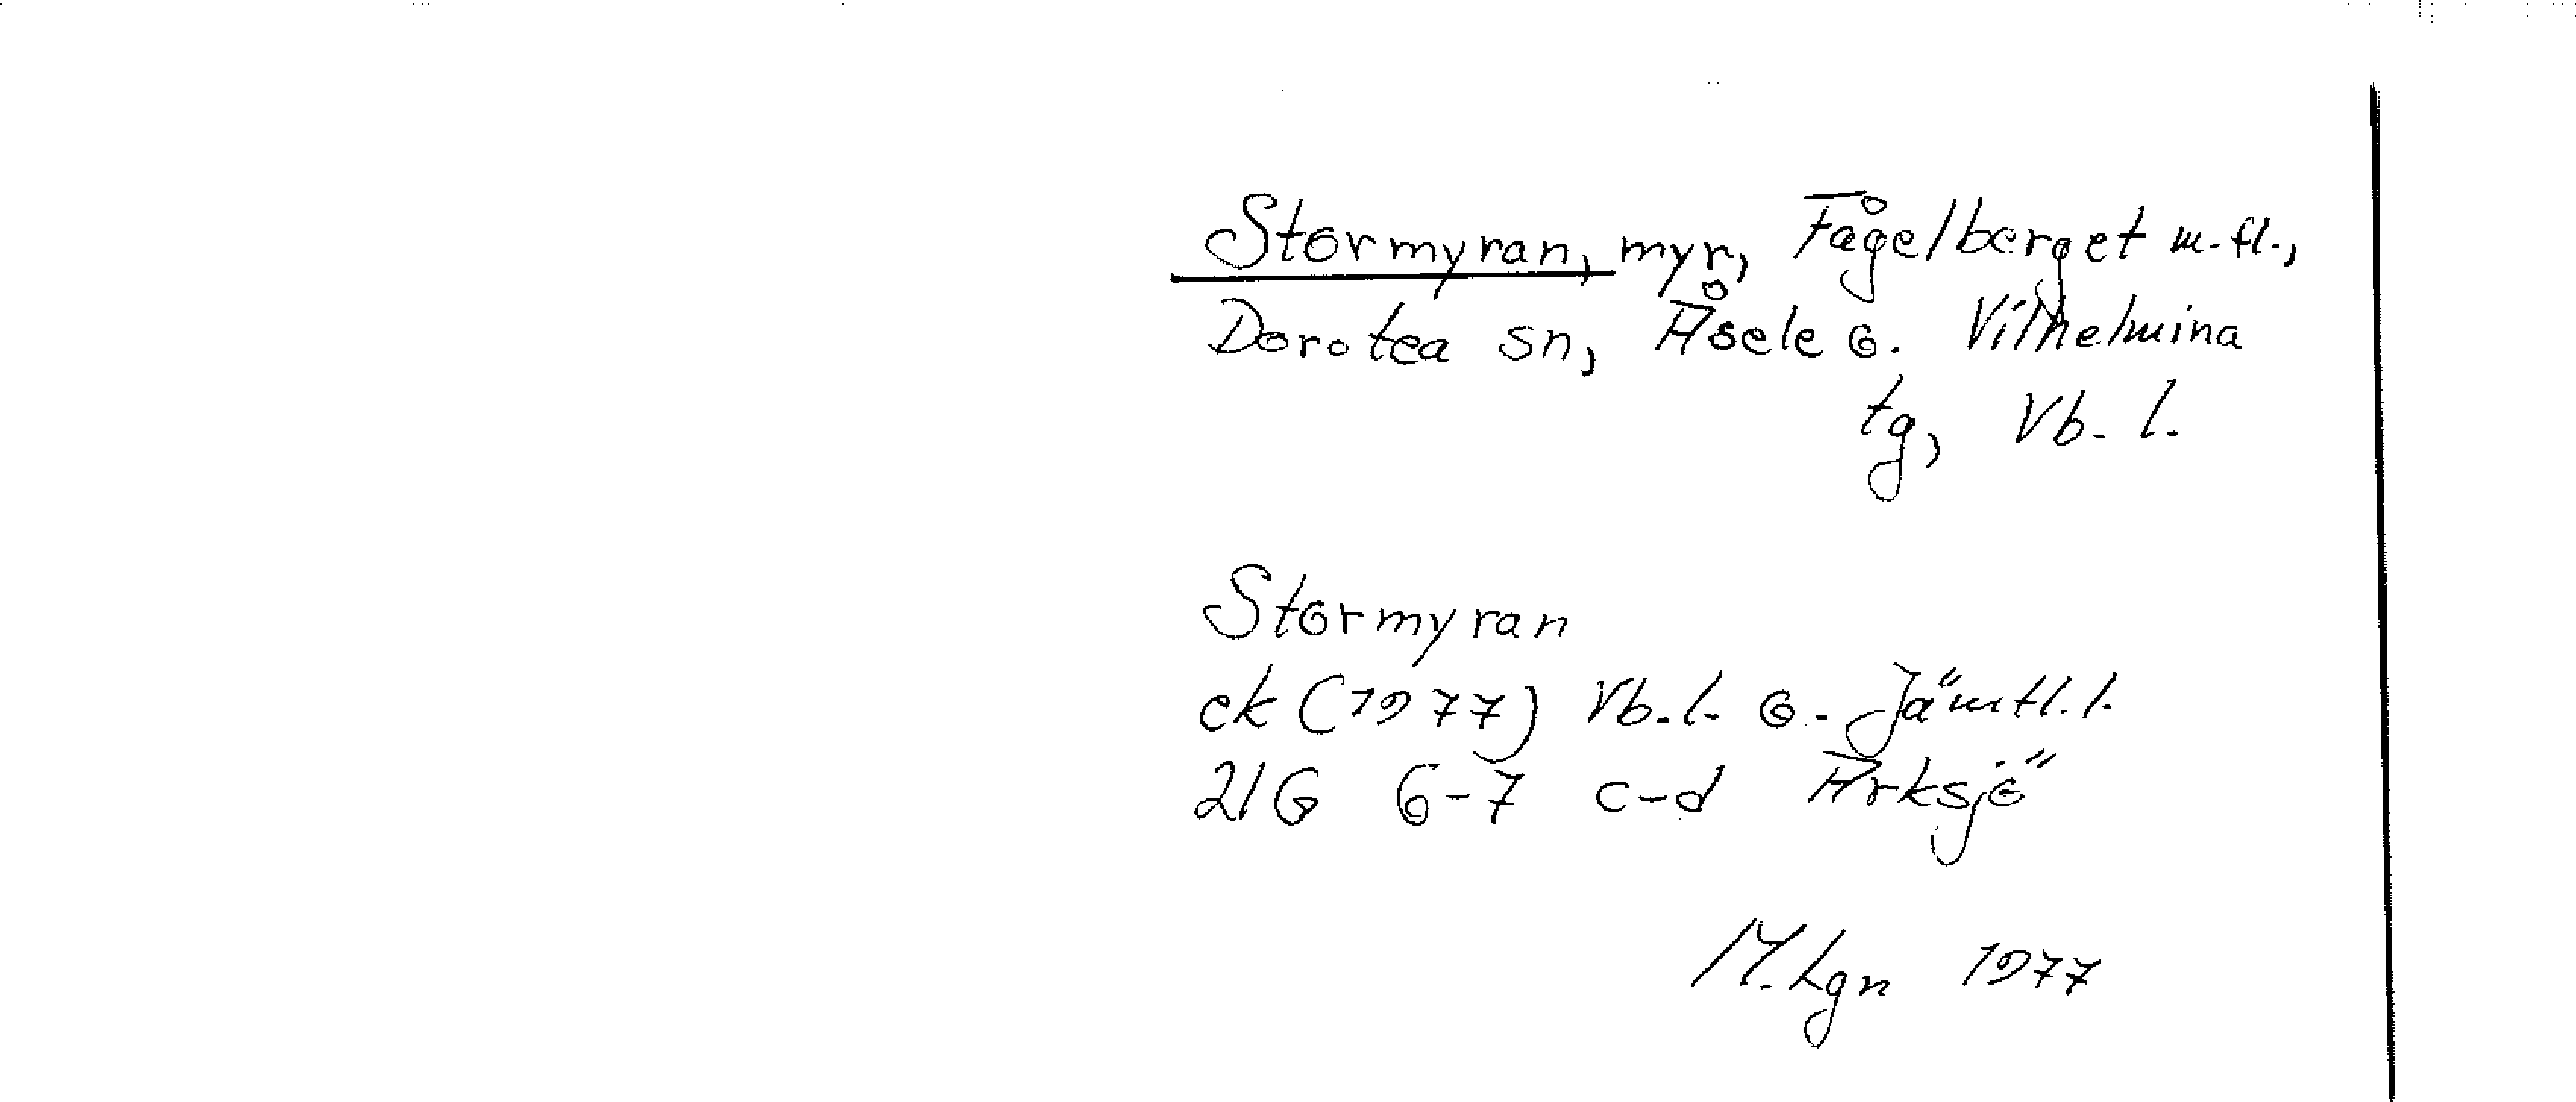 Stormyran, myr, Fågelberget m.fl.,
Dorotea sn, Åsele o. Vilhelmina
tg, Vb. l.
Stormyran
ek (1977) Vb. l. o. Jämtl. l.
21G 6-7 c-d Arksjö
M. Lgn 1977